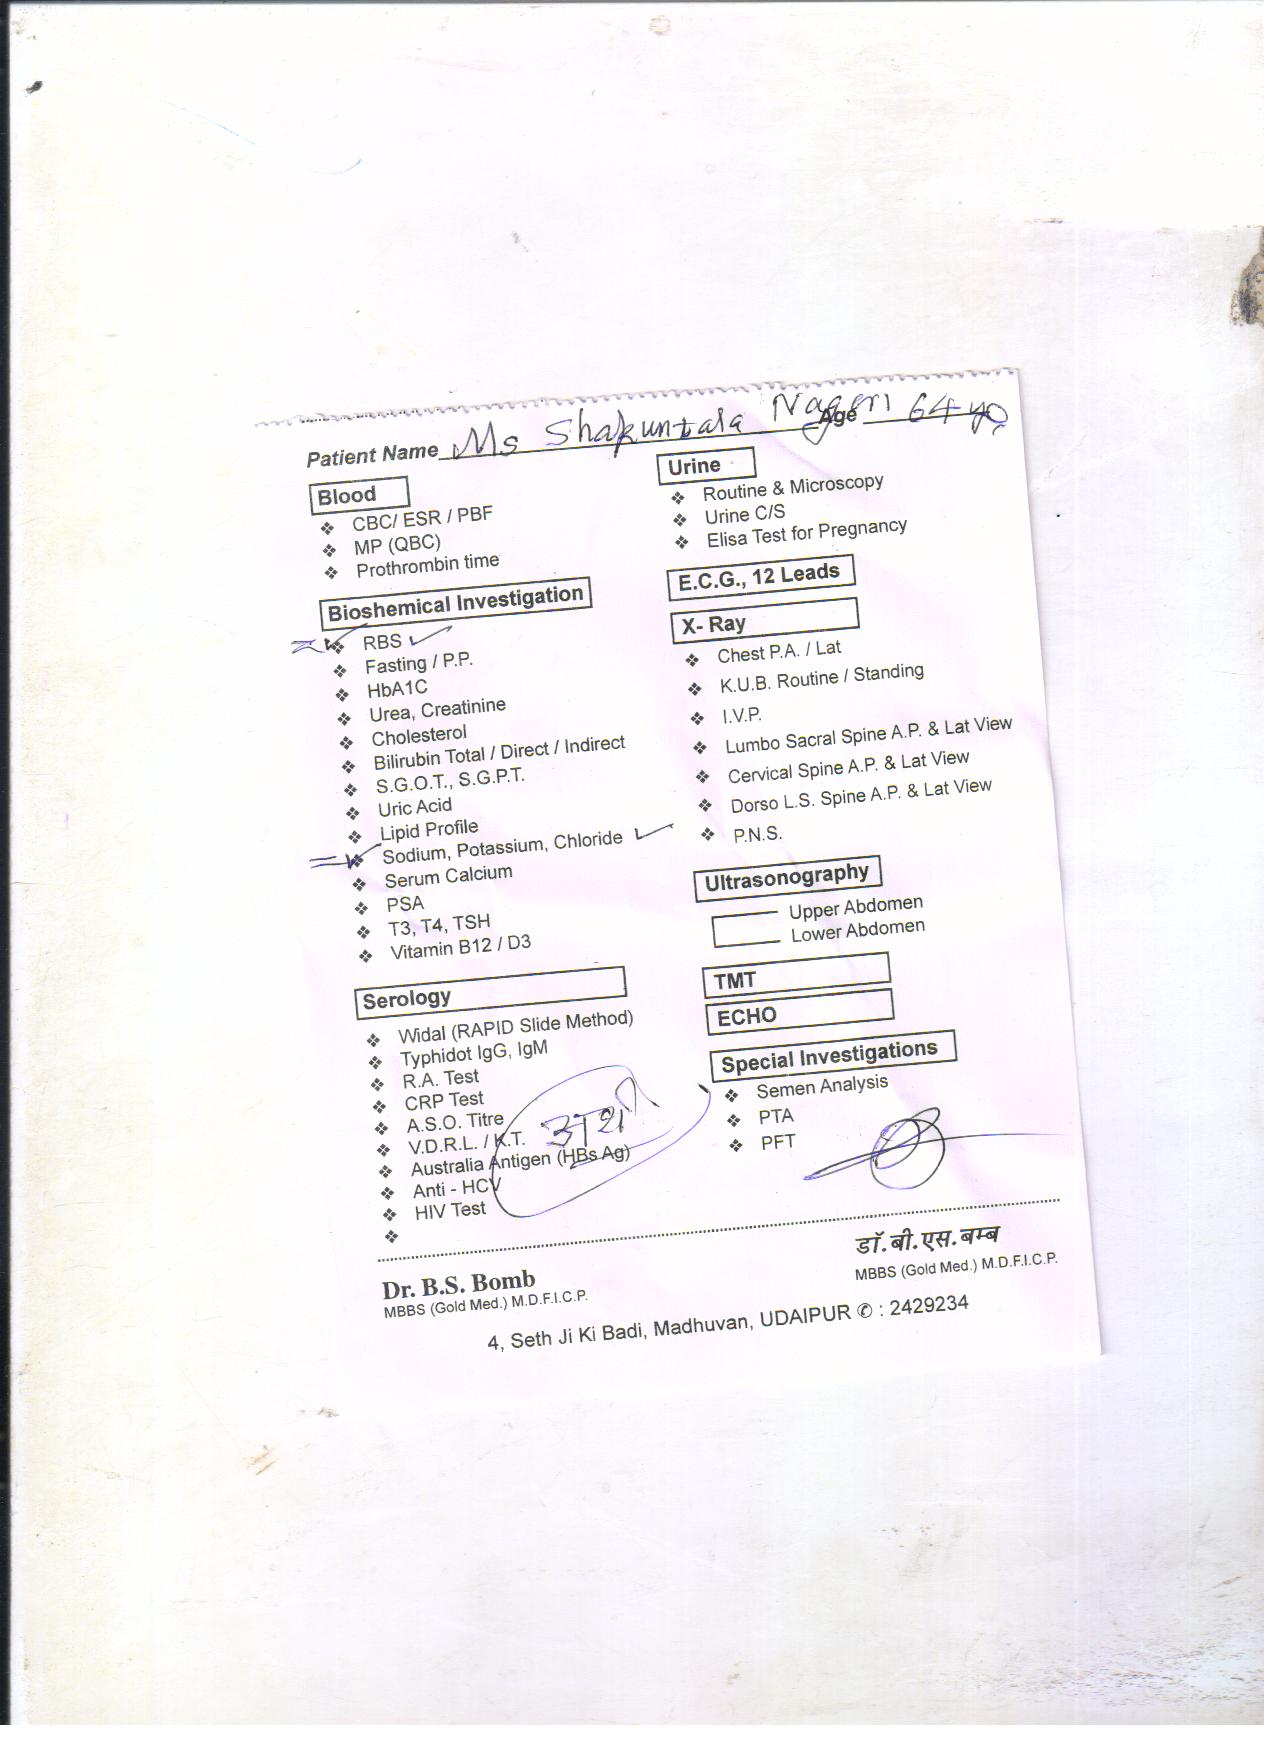 Patient Name Ms Shakuntala Nagori Age 64 yo
Blood
CBC/ ESR / PBF
MP (QBC)
Prothrombin time
Bioshemical Investigation
RBS
Fasting / P.P.
HbA1C
Urea, Creatinine
Cholesterol
Bilirubin Total / Direct / Indirect
S.G.O.T., S.G.P.T.
Uric Acid
Lipid Profile
Sodium, Potassium, Chloride
Serum Calcium
PSA
T3, T4, TSH
Vitamin B12 / D3
Serology
Widal (RAPID Slide Method)
Typhidot IgG, IgM
R.A. Test
CRP Test
A.S.O. Titre
V.D.R.L. / K.T.
Australia Antigen (HBs Ag)
Anti - HCV
HIV Test
Urine
Routine & Microscopy
Urine C/S
Elisa Test for Pregnancy
E.C.G., 12 Leads
X- Ray
Chest P.A. / Lat
K.U.B. Routine / Standing
I.V.P.
Lumbo Sacral Spine A.P. & Lat View
Cervical Spine A.P. & Lat View
Dorso L.S. Spine A.P. & Lat View
P.N.S.
Ultrasonography
Upper Abdomen
Lower Abdomen
TMT
ECHO
Special Investigations
Semen Analysis
PTA
PFT
Dr. B.S. Bomb
MBBS (Gold Med.) M.D.F.I.C.P.
डॉ. बी. एस. बम्ब
MBBS (Gold Med.) M.D.F.I.C.P.
4, Seth Ji Ki Badi, Madhuvan, UDAIPUR ✆ : 2429234